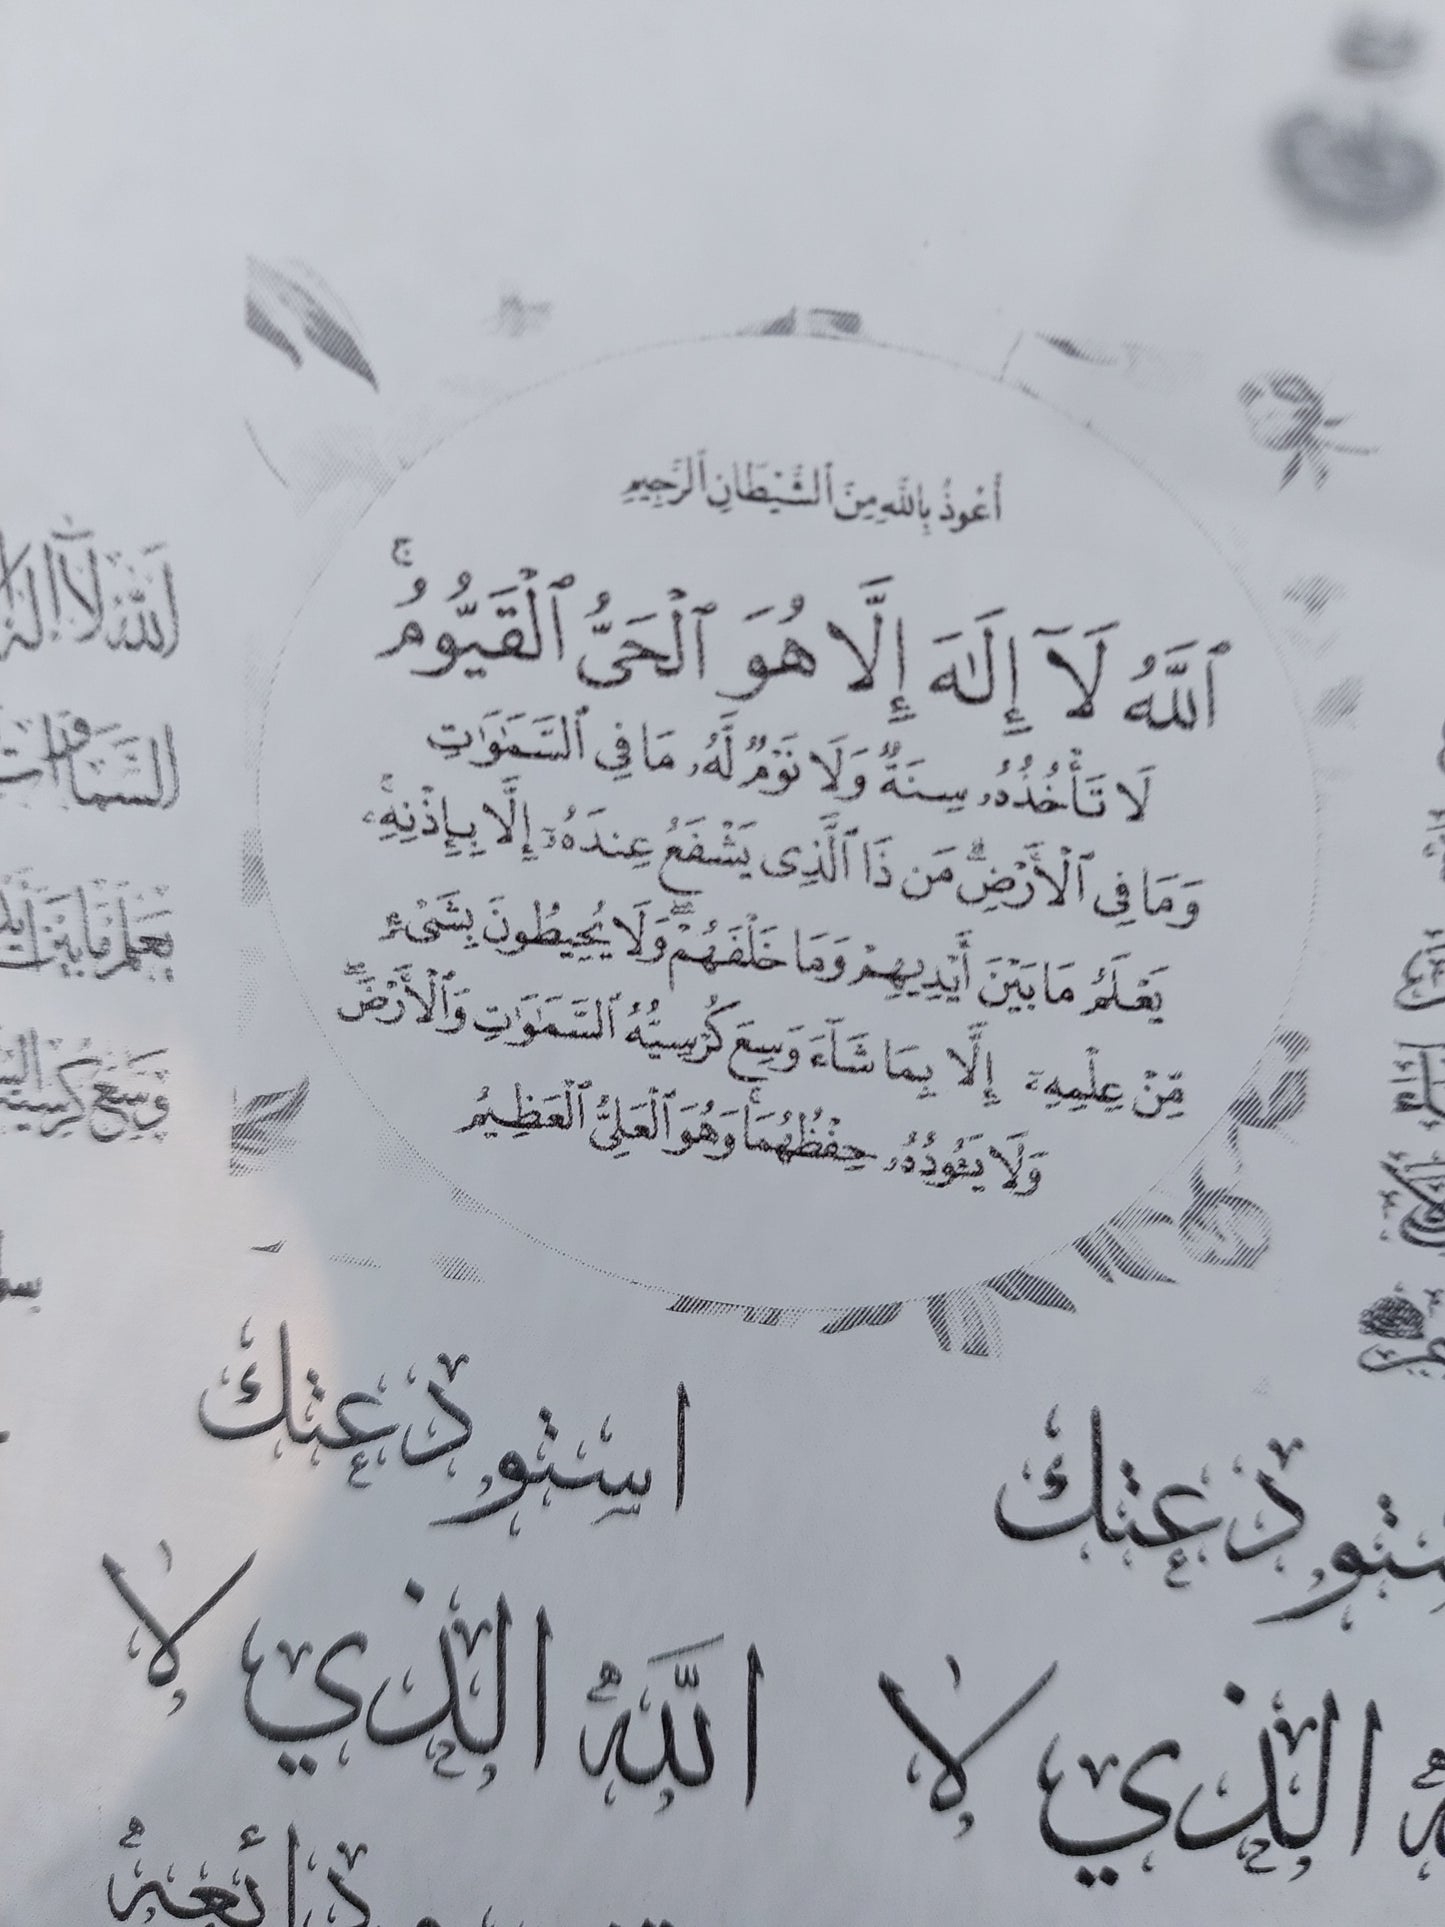 أَعُوذُ بِاللَّهِ مِنَ ٱلشَّيْطَانِ ٱلرَّجِيمِ
ٱللَّهُ لَآ إِلَٰهَ إِلَّا هُوَ ٱلْحَىُّ ٱلْقَيُّومُ ۚ
لَا تَأْخُذُهُۥ سِنَةٌ وَلَا نَوْمٌ لَّهُۥ مَا فِى ٱلسَّمَٰوَٰتِ
وَمَا فِى ٱلْأَرْضِ ۗ مَن ذَا ٱلَّذِى يَشْفَعُ عِندَهُۥٓ إِلَّا بِإِذْنِهِۦ ۚ
يَعْلَمُ مَا بَيْنَ أَيْدِيهِمْ وَمَا خَلْفَهُمْ ۖ وَلَا يُحِيطُونَ بِشَىْءٍ
مِّنْ عِلْمِهِۦٓ إِلَّا بِمَا شَآءَ وَسِعَ كُرْسِيُّهُ ٱلسَّمَٰوَٰتِ وَٱلْأَرْضَ ۖ
وَلَا يَـُٔودُهُۥ حِفْظُهُمَا ۚ وَهُوَ ٱلْعَلِىُّ ٱلْعَظِيمُ
الله لا اله
السماوات
يعلم ما بين
وسع كرسيه
استودعتك
الله الذي لا
ودائعه
ستودعتك
الذي لا